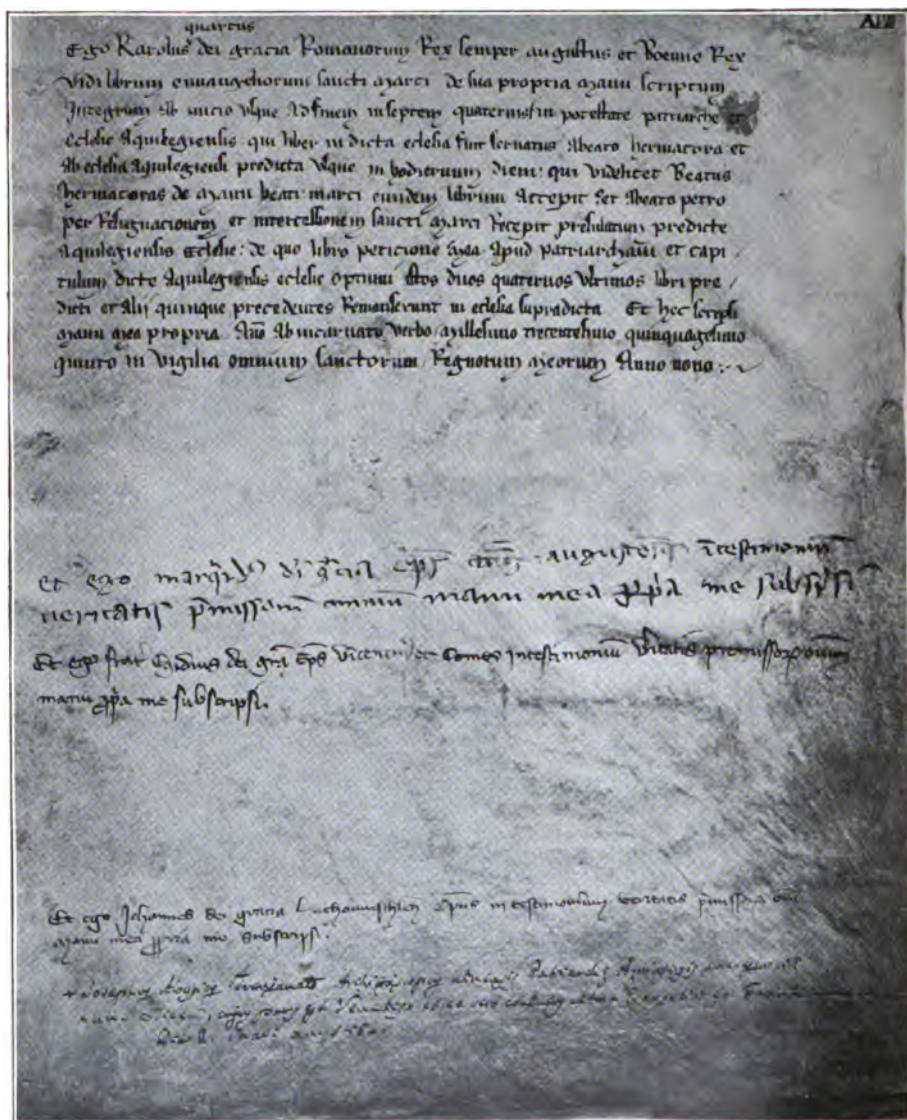 quartus
AVII
Ego Karolus dei gracia Romanorum Rex semper augustus et Boemie Rex
vidi librum ewangeliorum sancti Marci de sua propria manu scriptum
Integrum Ab inicio usque Ad finem in septem quaternis in potestate patriarche et
ecclesie Aquilegiensis qui liber in dicta eclesia fuit servatus Abeato hermacora et
Ab eclesia Aquilegiensi predicta usque in hodiernum diem qui videlicet Beatus
hermacoras de manu beati marci eundem librum Accepit Et Abeato petro
per Resignacionem et intercessionem sancti Marci recepit presulatum predicte
Aquilegiensis Eclesie : de quo libro peticione mea Apud patriarcham et capi /
tulum dicte Aquilegiensis eclesie optinui istos duos quaternos ultimos libri pre /
dicti et Alii quinque precedentes Remanserunt in eclesia supradicta Et hec scripsi
manu mea propria Año Ab incarnato verbo millesimo trecentesimo quinquagesimo
quarto in vigilia omnium sanctorum Regnorum meorum Anno nono :
et ego marq̄rdꝰ dī gr̄cia ep̄s augusteñ ī testimoniū
veritatis p̄missorum omniū manu mea ꝓp̄a me subscripsi
Et ego frat̄ Egidius dei gr̄a ep̄s vicentin̄ et Comes intestimoniū v̄itatis premissoꝝ oīm
manu ꝓp̄a me subscripsi.
Et ego Johannes dei gracia ep̄us in testimonium veritatis p̄missoꝝ
manu mea ꝓp̄ria me subscripsi